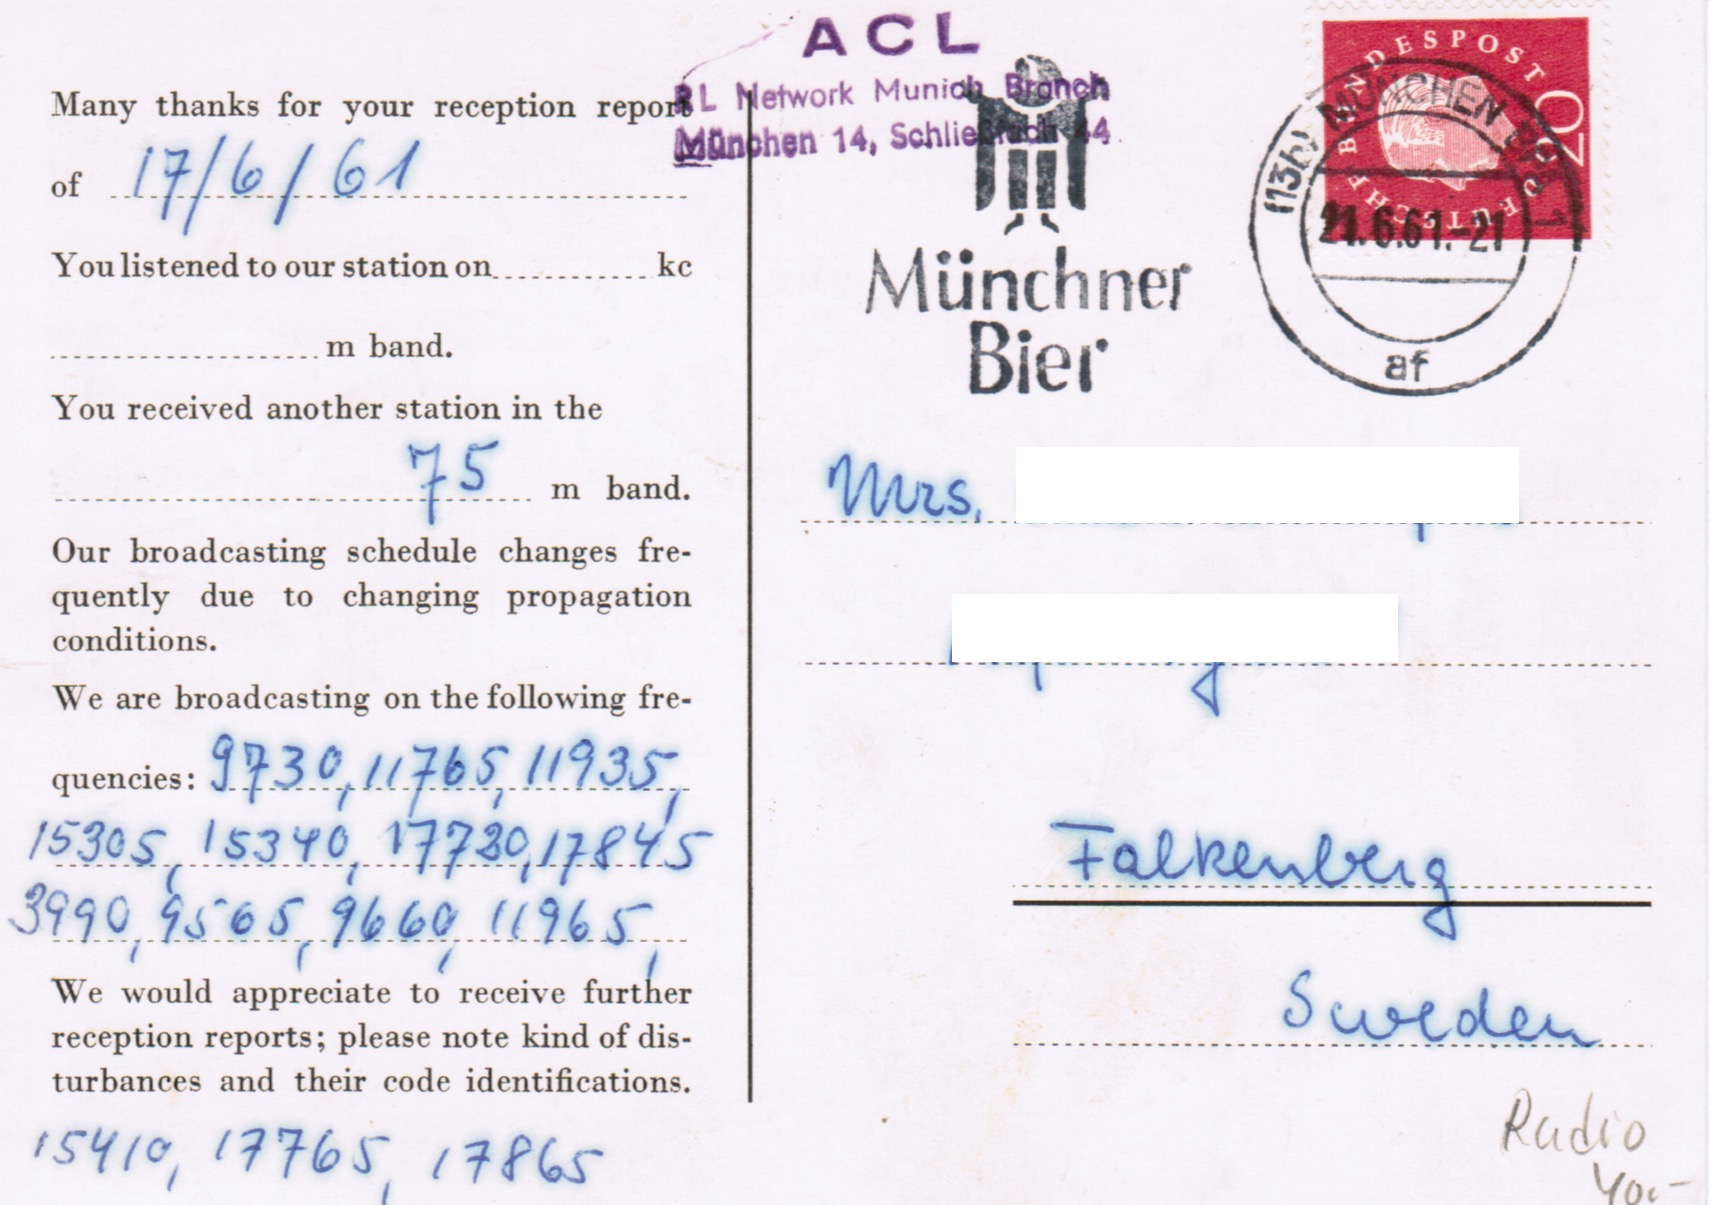 Many thanks for your reception report
of 17/6/61
You listened to our station on kc
m band.
You received another station in the
75 m band.
Our broadcasting schedule changes fre-
quently due to changing propagation
conditions.
We are broadcasting on the following fre-
quencies: 9730, 11765, 11935,
15305, 15340, 17720, 17845
3990, 9565, 9660, 11965,
We would appreciate to receive further
reception reports; please note kind of dis-
turbances and their code identifications.
15410, 17765, 17865
ACL
RL Network Munich Branch
München 14, Schließfach 44
Münchner
Bier
DEUTSCHE BUNDESPOST
20
(13b) MÜNCHEN
21.6.61.-21
af
Mrs.
Falkenberg
Sweden
Radio
40.-